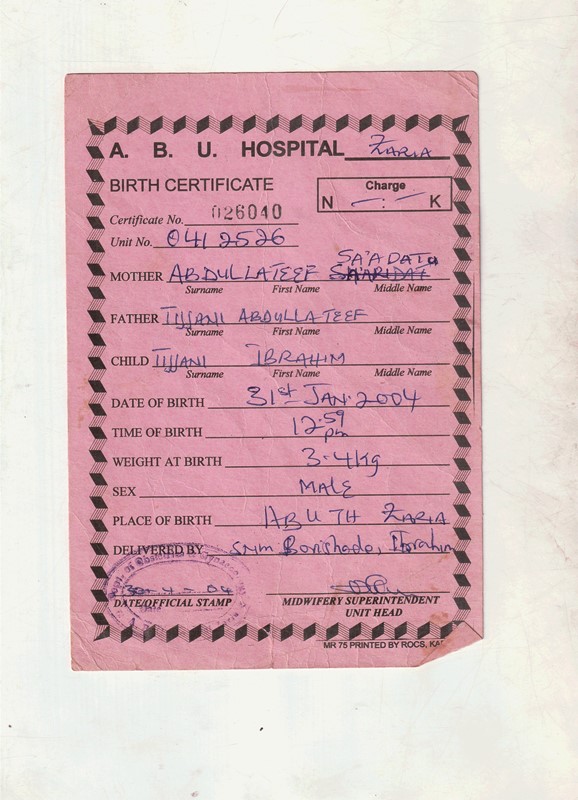 A. B. U. HOSPITAL ZARIA
BIRTH CERTIFICATE
Charge
N - : - K
Certificate No. 026040
Unit No. 0412526
SA'ADATU
MOTHER ABDULLATEEF
Surname First Name Middle Name
FATHER TIJJANI ABDULLATEEF
Surname First Name Middle Name
CHILD TIJJANI IBRAHIM
Surname First Name Middle Name
DATE OF BIRTH 31st JAN. 2004
TIME OF BIRTH 12.59 pm
WEIGHT AT BIRTH 3.4kg
SEX MALE
PLACE OF BIRTH ABUTH ZARIA
DELIVERED BY Ibrahim
DATE/OFFICIAL STAMP
MIDWIFERY SUPERINTENDENT
UNIT HEAD
MR 75 PRINTED BY ROCS,